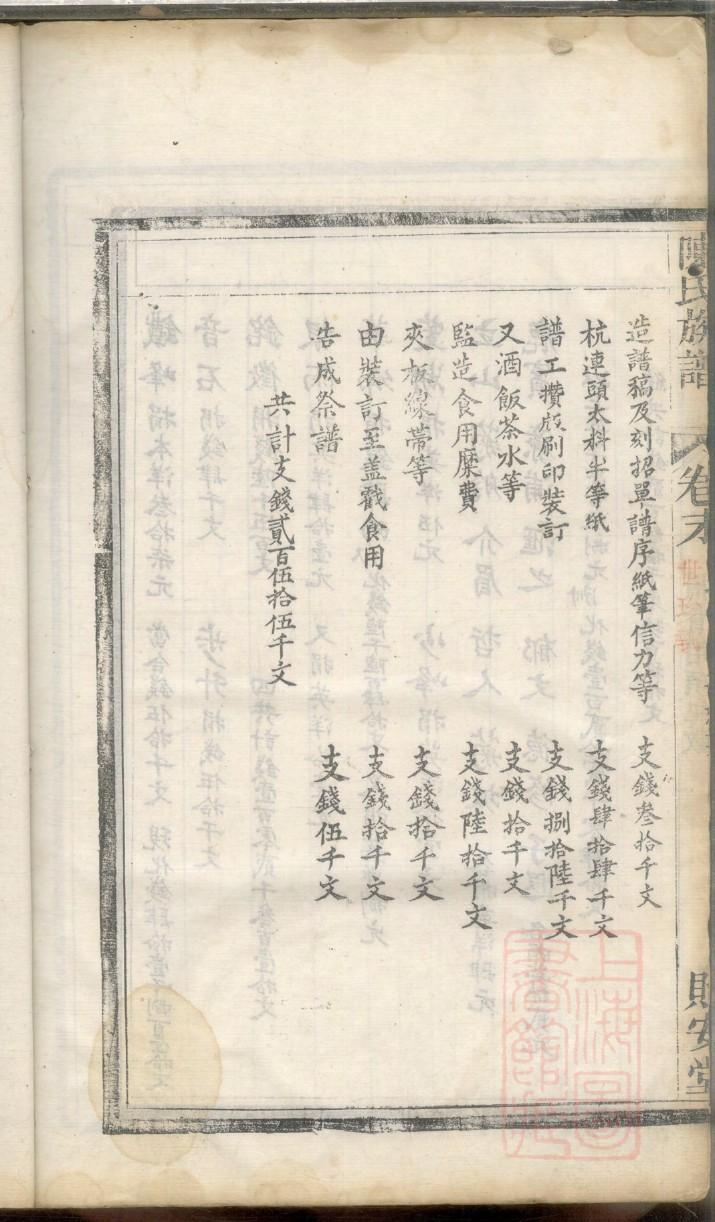 陳氏族譜
卷末
財安堂
造譜稿及刻招單譜序紙筆信力等 支錢叁拾千文
杭連頭太料半等紙 支錢肆拾肆千文
譜工攢版刷印裝訂 支錢捌拾陸千文
又酒飯茶水等 支錢拾千文
監造食用糜費 支錢陸拾千文
夾板線帶等 支錢拾千文
由裝訂至盖戳食用 支錢拾千文
告成祭譜 支錢伍千文
共計支錢貳百伍拾伍千文